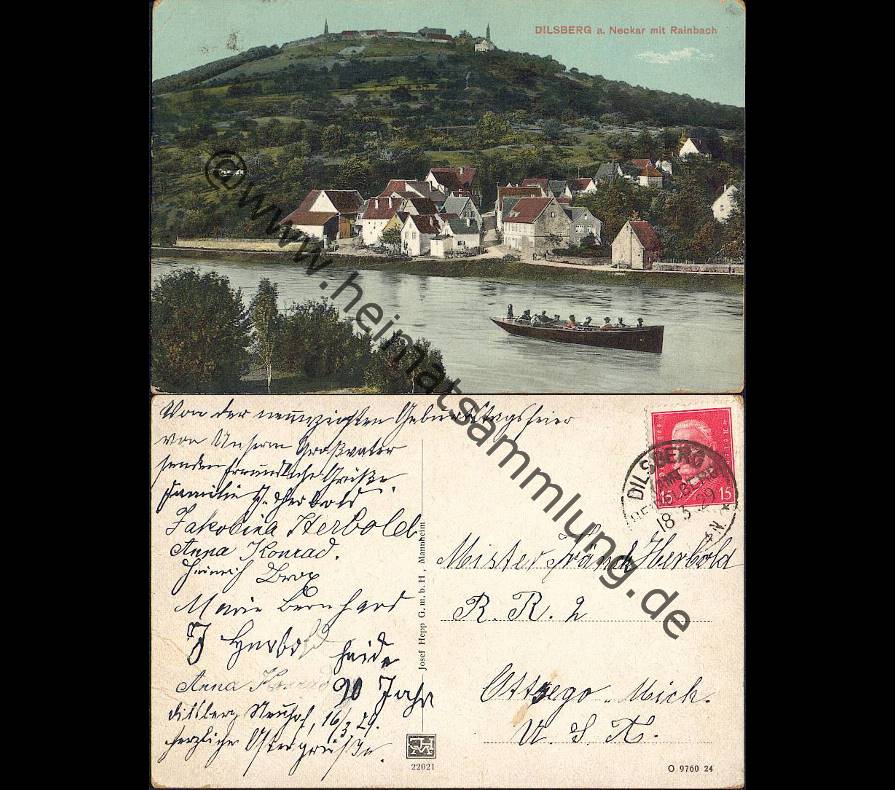 DILSBERG a. Neckar mit Rainbach
© www.heimatsammlung.de
Von der neunzigsten Geburtstagsfeier
von Unserm Großvater
senden freundliche Grüße.
Familie J. Herbold
Jakobina Herbold
Anna Konrad.
Heinrich
Marie Bernhard
J Herbold heute
Anna Konrad 90 Jahr
Dilsberg Neuhof, 16/3 29.
herzliche Ostergrüße.
Josef Hepp G.m.b.H., Mannheim
22021
15 15
DILSBERG
18 3 29
Mister Frank Herbold
R. R. 2
Ottsego. Mich.
U. S. A.
O 9760 24